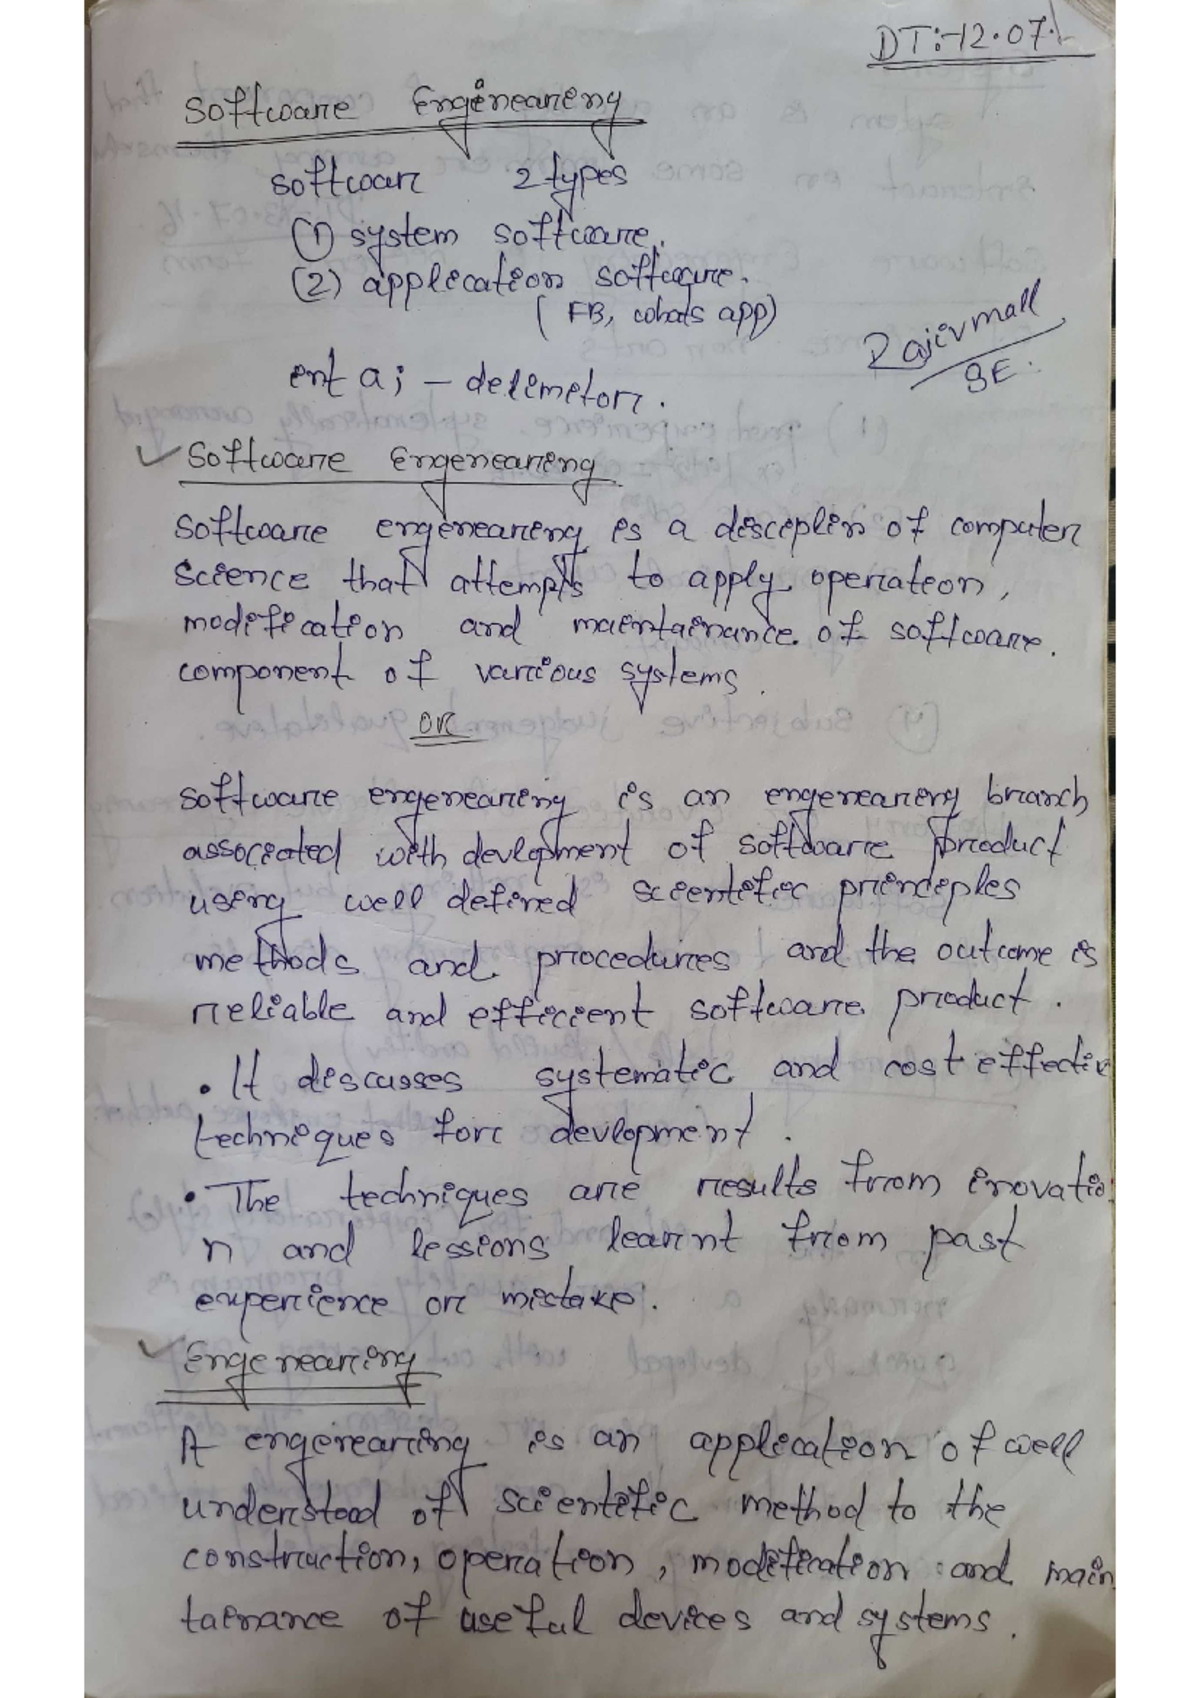 DT:-12.07.
Software Engineareng
softwar 2 types
(1) system software.
(2) application software.
( FB, whats app)
Rajiv mall
SE.
int a; - delimetor.
Software Engenearing
Software engenearing is a disceplin of computer
Science that attempts to apply operation,
modification and maintainance of software.
component of various systems.
OR
software engenearing is an engenearing branch
associated with devlopment of software product
using well defined scientific principles
methods and procedures and the outcome is
reliable and efficient software product.
• It discusses systematic and cost effectiv
techniques for devlopment.
• The techniques are results from inovatio
n and lessions learnt from past
experience or mistake.
Engenearing
A engenearing is an application of well
understood of scientific method to the
construction, operation, modification and main
tainance of useful devices and systems.